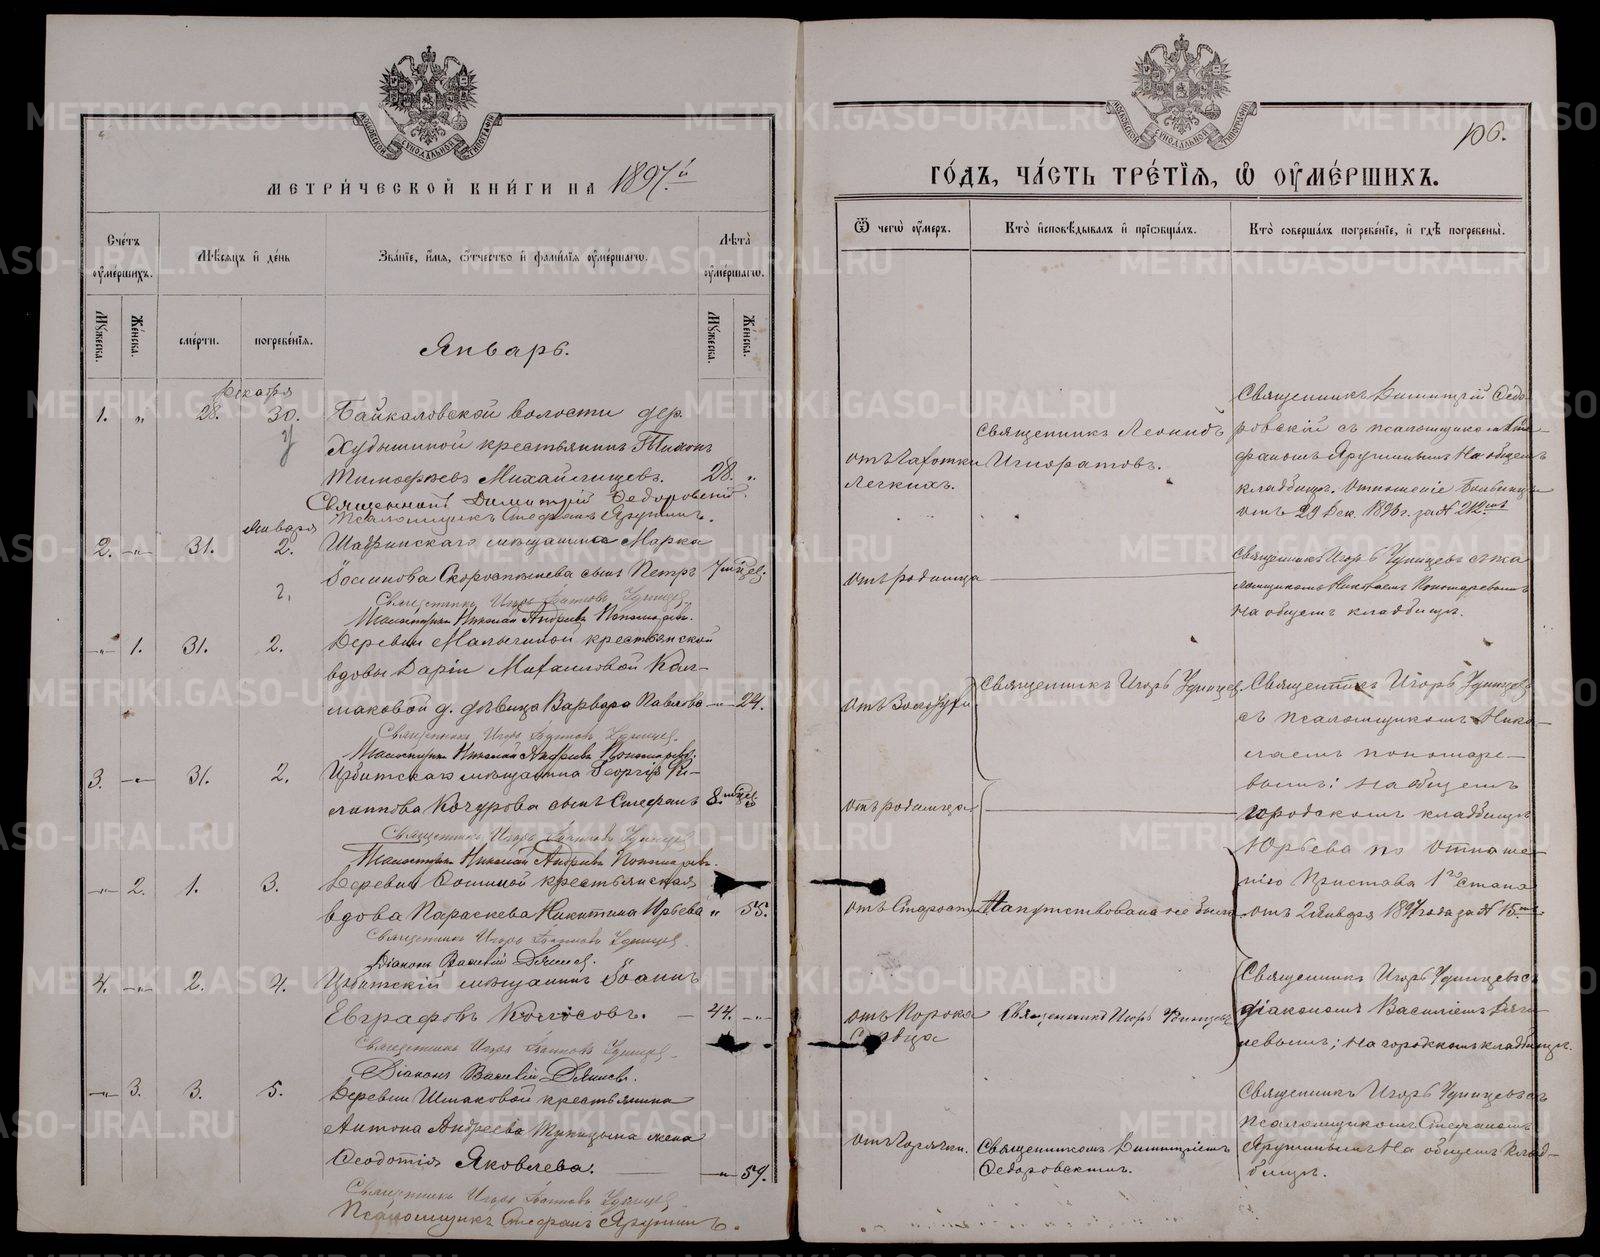 МЕТРИ́ЧЕСКОЙ КНИ́ГИ НА 1897й
Сче́тъ ѹ҆ме́ршихъ.
Мѣ́сяцъ и҆ де́нь
Зва́нїе, и҆́мя, ѻ҆́тчество и҆ фами́лїя ѹ҆ме́ршагѡ.
Лѣ́та ѹ҆ме́ршагѡ.
Мꙋ́жеска.
Же́нска.
сме́рти.
погребе́нїя.
Мꙋ́жеска.
Же́нска.
Январь.
Декабря
1. „ 28. 30. Байкаловской волости дер.
Худышиной крестьянинъ Тихонъ
Тимофѣевъ Михайлищевъ. 28. „
Священникъ Димитрій Ѳедоровскій.
Псаломщикъ Стефанъ Яружинъ.
Января
2. -„- 31. 2. Шадринскаго мѣщанина Марка
Іоаннова Скоропышева сынъ Петръ
Священникъ Игорь Удинцев
Николай Андреевъ Пономаревъ.
-„- 1. 31. 2. Деревни Малыгиной крестьянской
вдовы Даріи Михаиловой Кол-
маковой д. дѣвица Варвара Павлова -„- 24.
Священникъ Игорь Удинцев.
Николай Андреевъ Пономаревъ.
3. -„- 31. 2. Ирбитскаго мѣщанина Георгія Фи-
липпова Кочурова сынъ Стефанъ
Священникъ Игорь Удинцев
Николай Андреевъ Пономаревъ.
-„- 2. 1. 3. Деревни крестьянская
вдова Параскева Никитина Юрьева „ 55.
Священникъ Игорь Удинцев.
Діаконъ Василій
4. -„- 2. 4. Ирбитскій мѣщанинъ Іоаннъ
Евграфовъ Колосовъ. — 44. -„-
Священникъ Игорь Удинцев
Діаконъ Василій
-„- 3. 3. 5. Деревни Шмаковой крестьянина
Антона Андреева жена
Ѳеодотія Яковлева. -„- 59.
Священникъ Игорь Удинцев
Псаломщикъ Стефанъ Яружинъ.
106.
ГО́ДЪ, ЧА́СТЬ ТРЕ́ТЇЯ, Ѡ҆ ОУ҆МЕ́РШИХЪ.
Ѿ чегѡ̀ ѹ҆́меръ.
Кто̀ и҆сповѣ́дывалъ и҆ прїѡбща́лъ.
Кто̀ соверша́лъ погребе́нїе, и҆ гдѣ̀ погребены̀.
отъ Чахотки
легкихъ.
Священникъ Леонидъ
Игноратовъ.
Священникъ Димитрій Ѳедо-
ровскій съ псаломщикомъ Сте-
фаномъ Яружинымъ На общемъ
кладбищѣ. Отношеніе Больницы
отъ 29 Дек. 1896 г. за № 212
отъ родимца
Священникъ Игорь Удинцевъ съ пса
ломщикомъ Николаемъ Пономаревымъ
На общемъ кладбищѣ.
отъ Золотухи
Священникъ Игорь Удинцев
Священникъ Игорь Удинцевъ
съ псаломщикомъ Нико-
лаемъ Пономаре-
вымъ: на общемъ
городскомъ кладбищѣ
отъ родимца
Юрьева по Отноше
нію Пристава 1го Стана
отъ Старости
Напутствована не была
отъ 2 Января 1897 года за № 15
отъ Порока
Сердца
Священникъ Игорь Удинцевъ
Священникъ Игорь Удинцевъ съ
діакономъ Василіемъ
на городскомъ кладбищѣ.
отъ Горячки.
Священникомъ Димитріемъ
Ѳедоровскимъ.
Священникъ Игорь Удинцевъ съ
псаломщикомъ Стефаномъ
Яружинымъ На общемъ Клад-
бищѣ.
METRIKI.GASO-URAL.RU